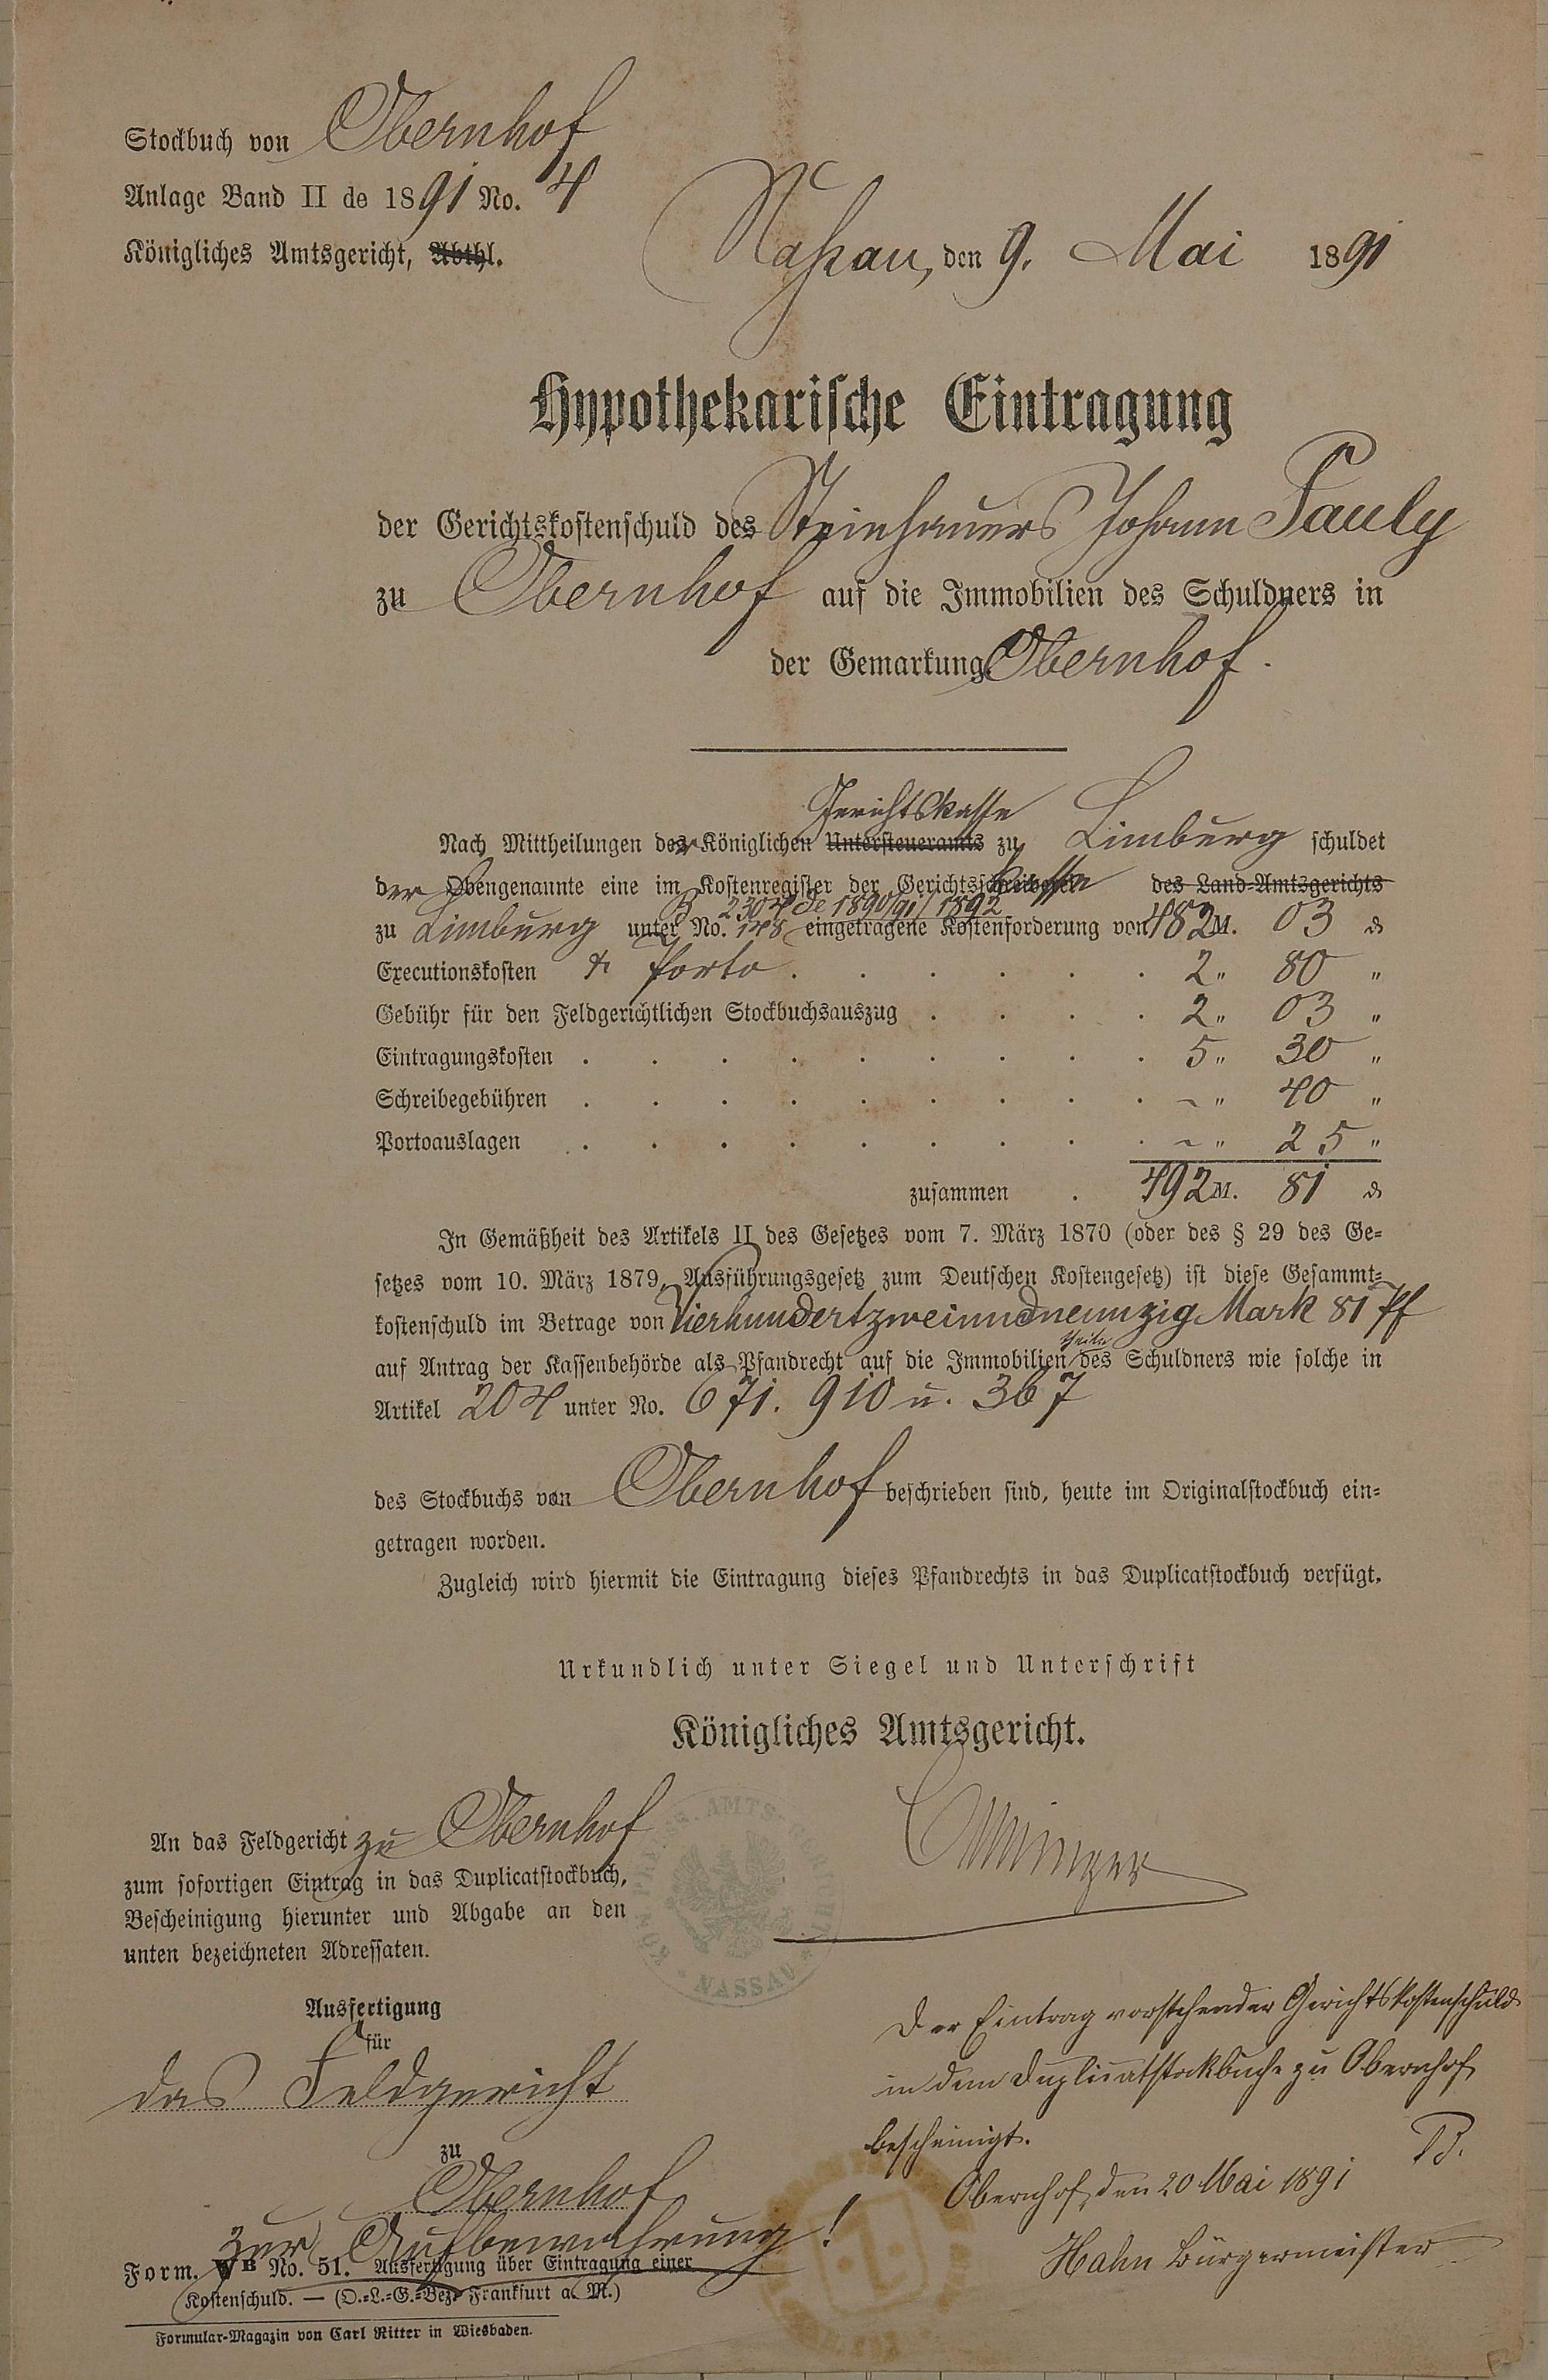 Stockbuch von Obernhof
Anlage Band II de 1891 No. 4
Königliches Amtsgericht, Abthl.
Naßau, den 9. Mai 1891
Hypothekarische Eintragung
der Gerichtskostenschuld des Steinhauers Johann Pauly
zu Obernhof auf die Immobilien des Schuldners in
der Gemarkung Obernhof.
Gerichtskasse
Nach Mittheilungen der Königlichen Untersteueramts zu Limburg schuldet
der Obengenannte eine im Kostenregister der Gerichtskasse des Land-Amtsgerichts
2304 de 1890/91/1892
zu Limburg unter No. 148 eingetragene Kostenforderung von 482 M. 03 ₰
Executionskosten & Porto . . . . . . 2 „ 80 „
Gebühr für den Feldgerichtlichen Stockbuchsauszug . . . . 2 „ 03 „
Eintragungskosten . . . . . . . . . 5 „ 30 „
Schreibegebühren . . . . . . . . . ~ „ 40 „
Portoauslagen . . . . . . . . . ~ „ 25 „
zusammen . 492 M. 81 ₰
In Gemäßheit des Artikels II des Gesetzes vom 7. März 1870 (oder des § 29 des Ge-
setzes vom 10. März 1879, Ausführungsgesetz zum Deutschen Kostengesetz) ist diese Gesammt-
kostenschuld im Betrage von Vierhundertzweiundneunzig Mark 81 Pf
auf Antrag der Kassenbehörde als Pfandrecht auf die Immobilien des Schuldners wie solche in
Artikel 204 unter No. 671. 910 u. 367
des Stockbuchs von Obernhof beschrieben sind, heute im Originalstockbuch ein-
getragen worden.
Zugleich wird hiermit die Eintragung dieses Pfandrechts in das Duplicatstockbuch verfügt.
Urkundlich unter Siegel und Unterschrift
Königliches Amtsgericht.
An das Feldgericht zu Obernhof
zum sofortigen Eintrag in das Duplicatstockbuch,
Bescheinigung hierunter und Abgabe an den
unten bezeichneten Adressaten.
AMTS
NASSAU
Ausfertigung
für
das Feldgericht
zu
Obernhof
zur Aufbewahrung!
Der Eintrag vorstehender Gerichtskostenschuld
in dem Duplicatstockbuche zu Obernhof
bescheinigt. B.
Obernhof, den 20 Mai 1891
Hahn Bürgermeister
Form. V B No. 51. Ausfertigung über Eintragung einer
Kostenschuld. — (O.-L.-G.-Bez. Frankfurt a. M.)
Formular-Magazin von Carl Ritter in Wiesbaden.